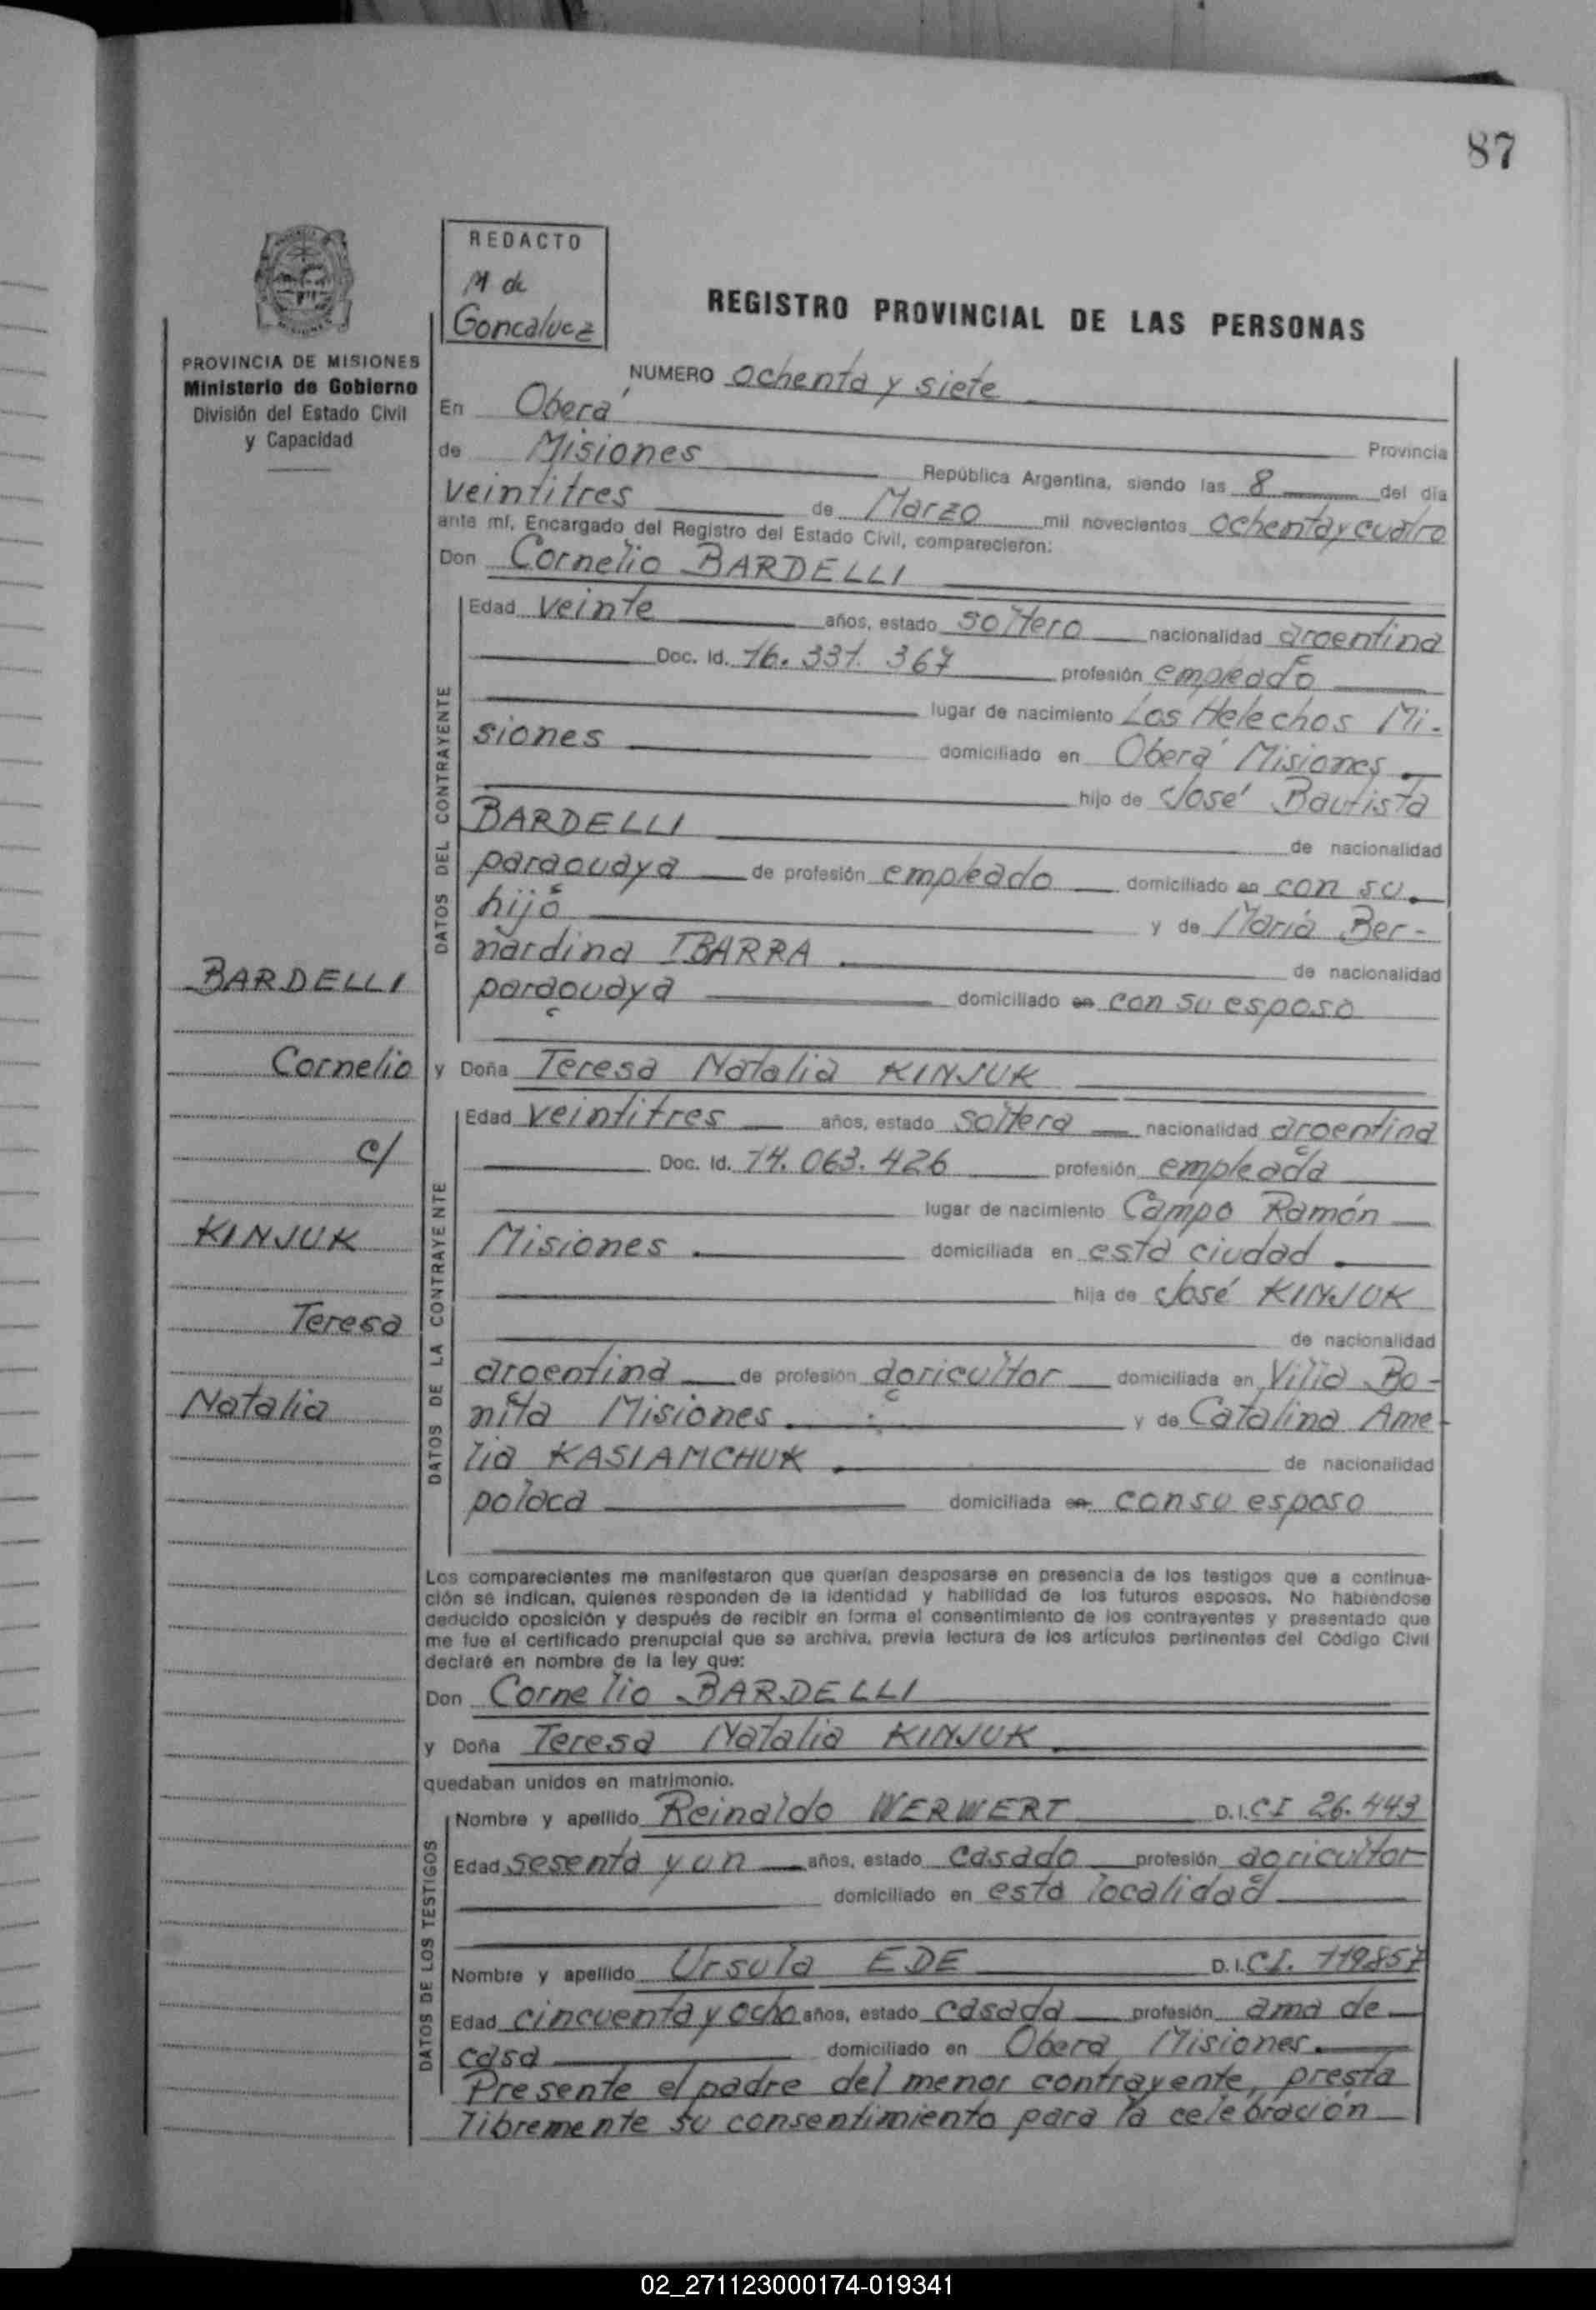 87
REDACTO
M de
Goncalvez
REGISTRO PROVINCIAL DE LAS PERSONAS
PROVINCIA DE MISIONES
Ministerio de Gobierno
División del Estado Civil
y Capacidad
NUMERO ochenta y siete
En Oberá Provincia
de Misiones República Argentina, siendo las 8 del día
veintitres de Marzo mil novecientos ochenta y cuatro
ante mí, Encargado del Registro del Estado Civil, comparecieron:
Don Cornelio BARDELLI
Edad veinte años, estado soltero nacionalidad argentina
Doc. Id. 16.331.367 profesión empleado
lugar de nacimiento Los Helechos Mi-
siones domiciliado en Oberá Misiones
hijo de José Bautista
BARDELLI de nacionalidad
paraguaya de profesión empleado domiciliado en con su
hijo y de María Ber-
nardina IBARRA de nacionalidad
paraguaya domiciliado en con su esposo
y Doña Teresa Natalia KINJUK
Edad veintitres años, estado soltera nacionalidad argentina
Doc. Id. 14.063.426 profesión empleada
lugar de nacimiento Campo Ramón
Misiones domiciliada en esta ciudad
hija de José KINJUK
de nacionalidad
argentina de profesión agricultor domiciliada en Villa Bo-
nita Misiones y de Catalina Ame-
lia KASIAMCHUK de nacionalidad
polaca domiciliada en con su esposo
DATOS DEL CONTRAYENTE
DATOS DE LA CONTRAYENTE
BARDELLI
Cornelio
c/
KINJUK
Teresa
Natalia
Los comparecientes me manifestaron que querían desposarse en presencia de los testigos que a continua-
ción se indican, quienes responden de la identidad y habilidad de los futuros esposos. No habiéndose
deducido oposición y después de recibir en forma el consentimiento de los contrayentes y presentado que
me fue el certificado prenupcial que se archiva, previa lectura de los artículos pertinentes del Código Civil
declaré en nombre de la ley que:
Don Cornelio BARDELLI
y Doña Teresa Natalia KINJUK
quedaban unidos en matrimonio.
Nombre y apellido Reinaldo WERWERT D.I. CI 26.443
Edad sesenta y un años, estado casado profesión agricultor
domiciliado en esta localidad
Nombre y apellido Ursula EDE D.I. C.I. 119857
Edad cincuenta y ocho años, estado casada profesión ama de
casa domiciliado en Oberá Misiones.
DATOS DE LOS TESTIGOS
Presente el padre del menor contrayente, presta
libremente su consentimiento para la celebración
02_271123000174-019341